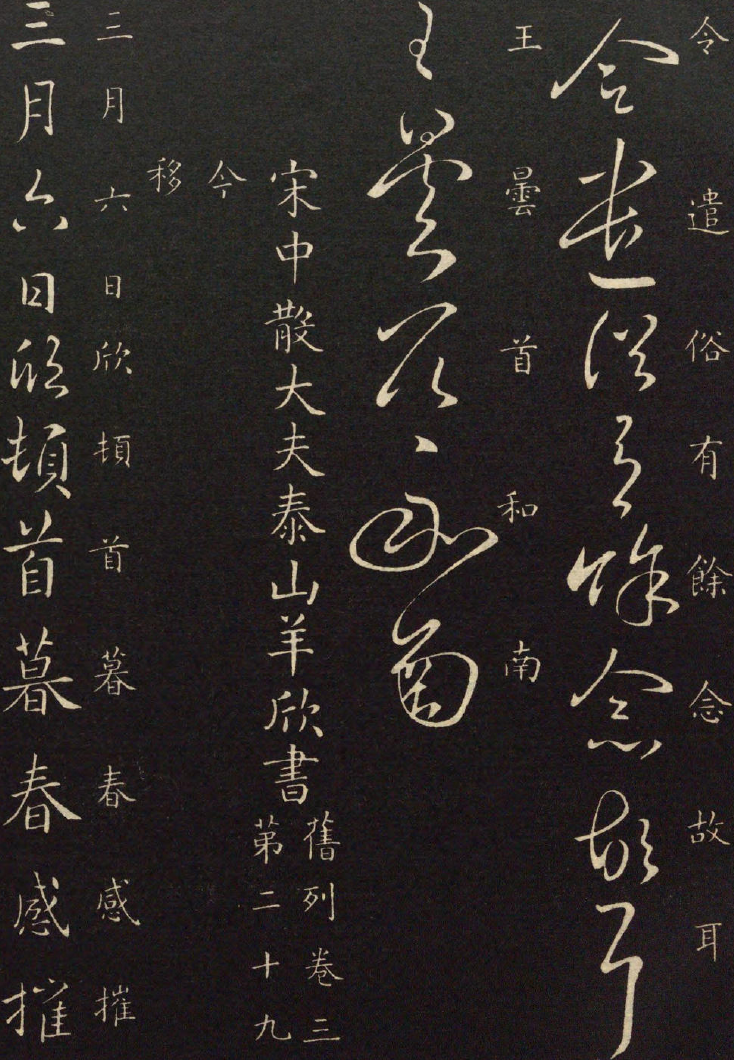 令遣俗有餘念故耳
令遣俗有餘念故耳
王曇首和南
王曇首、和南
宋中散大夫泰山羊欣書
舊列卷三
第二十九
今
移
三月六日欣頓首暮春感摧
三月六日欣頓首暮春感摧